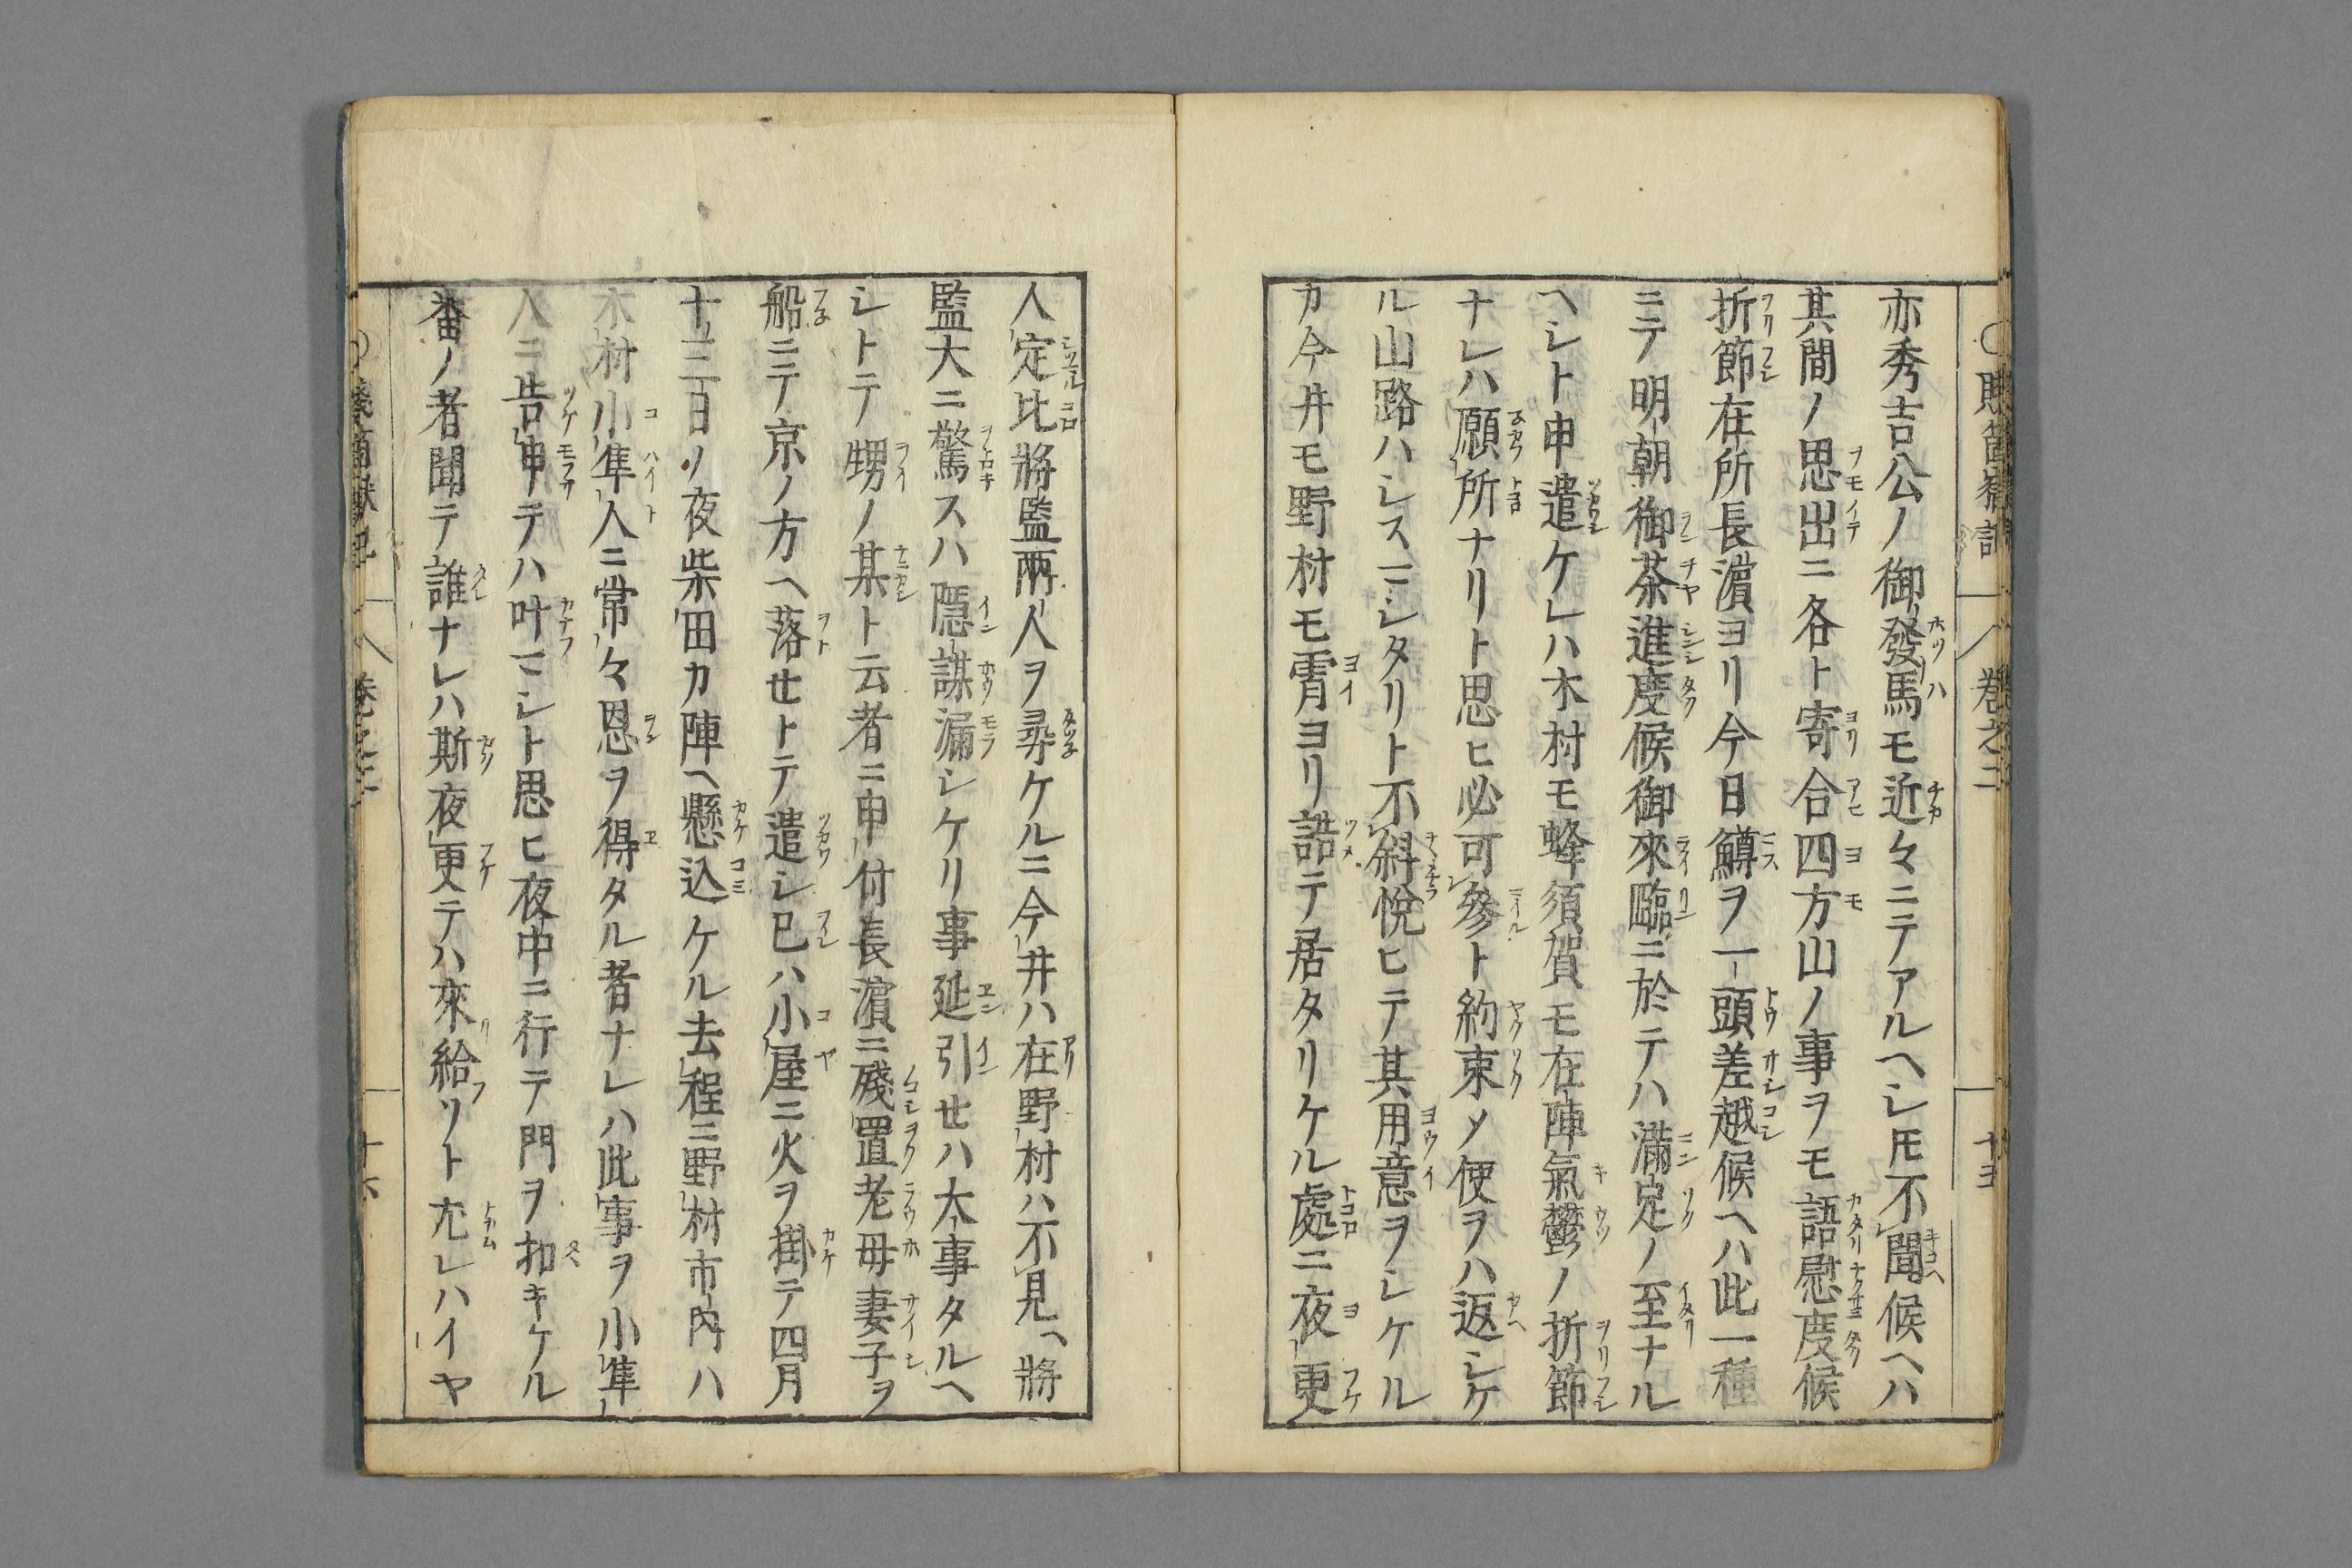 亦秀吉公ノ御發馬モ近々ニテアルヘレ𪜈不聞候ヘハ
其間ノ思出ニ各ト寄合四方山ノ事ヲモ語慰度候
折節在所長濵ヨリ今日鱒ヲ一頭差越候ヘハ此一種
ニテ明朝御茶進度候御來臨ニ於テハ滿足ノ至ナル
ヘシト申遣ケレハ木村モ蜂須賀モ在陣氣鬱ノ折節
ナレハ願所ナリト思ヒ必可參ト約束メ使ヲハ返シケ
ル山路ハシスマシタリト不斜悅ヒテ其用意ヲシケル
カ今井モ野村モ霄ヨリ詰テ居タリケル處ニ夜更
人定比將監兩人ヲ尋ケルニ今井ハ在野村ハ不見ヘ將
監大ニ驚スハ隱謀漏シケリ事延引セハ大事タルヘ
シトテ甥ノ某ト云者ニ申付長濵ニ殘置老母妻子ヲ
船ニテ京ノ方ヘ落セトテ遣シ已ハ小屋ニ火ヲ掛テ四月
十三日ノ夜柴田カ陣ヘ懸込ケル去程ニ野村市內ハ
木村小隼人ニ常々恩ヲ得タル者ナレハ此事ヲ小隼
人ニ告申テハ叶マシト思ヒ夜中ニ行テ門ヲ扣キケル
番ノ者聞テ誰ナレハ斯夜更テハ來給リト尤レハイヤ
巻之二